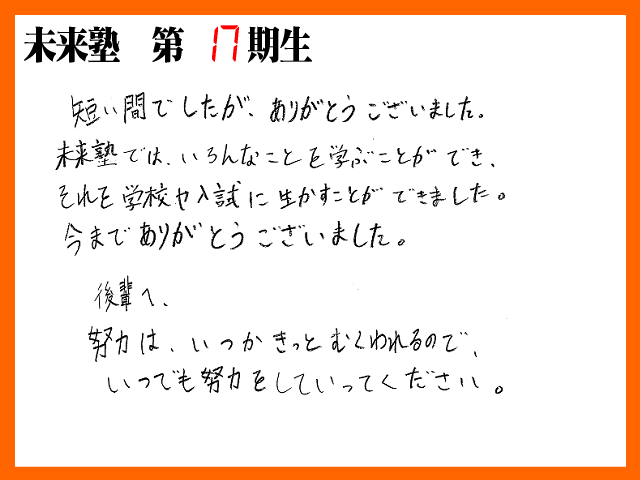 未来塾 第 17期生
短い間でしたが、ありがとうございました。
未来塾では、いろんなことを学ぶことができ、
それを学校や入試に生かすことができました。
今までありがとうございました。
後輩へ、
努力は、いつかきっとむくわれるので、
いつでも努力をしていってください。